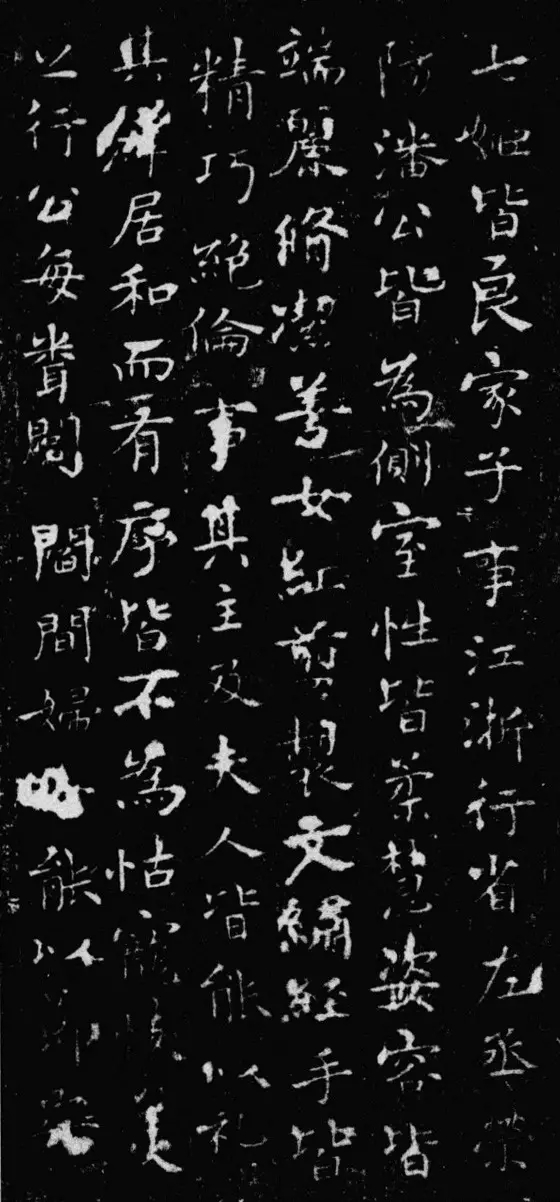 七姬皆良家子事江浙行省左丞荣
阳潘公皆為側室性皆柔慧姿容皆
端麗脩潔善女紅剪製文繡經手皆
精巧絕倫事其主及夫人皆能以礼
其羣居和而有序皆不為怙寵忮美
之行公每聞閭閻間婦女能以節